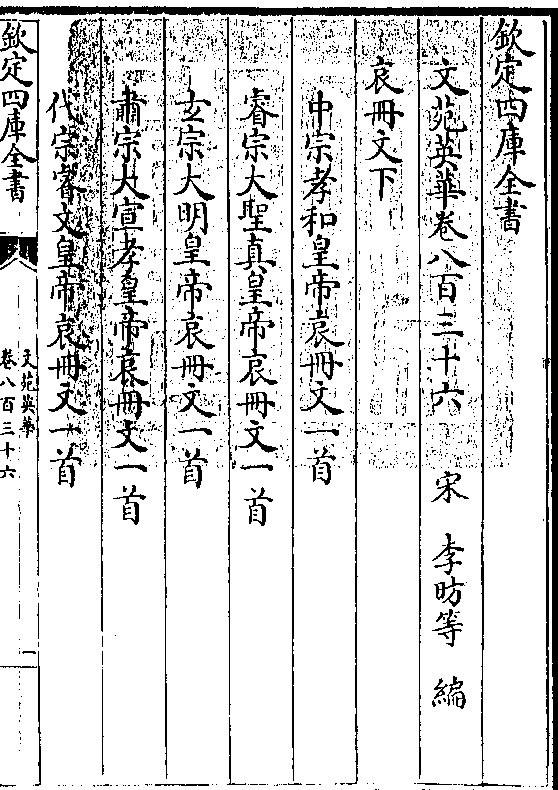 欽定四庫全書
文苑英華卷八百三十六　宋　李昉等　編
哀冊文下
中宗孝和皇帝哀冊文一首
睿宗大聖真皇帝哀冊文一首
玄宗大明皇帝哀冊文一首
肅宗大宣孝皇帝哀冊文一首
代宗睿文皇帝哀冊文一首
欽定四庫全書
文苑英華
卷八百三十六
一